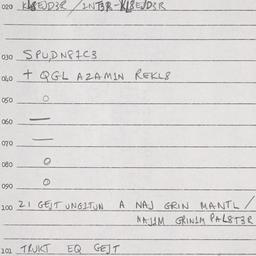 020 KL8EJD3R / INT3R-KL8EJD3R
030 SPUDNP1C3
040 + QGL AZAM1N REKL8
050 O
060 —
070 —
080 O
090 O
100 21 GEJT UNGITUN A NAJ GRIN MANTL /
NAJ1M GRIN1M PAL8T3R
101 TRUKT EQ GEJT